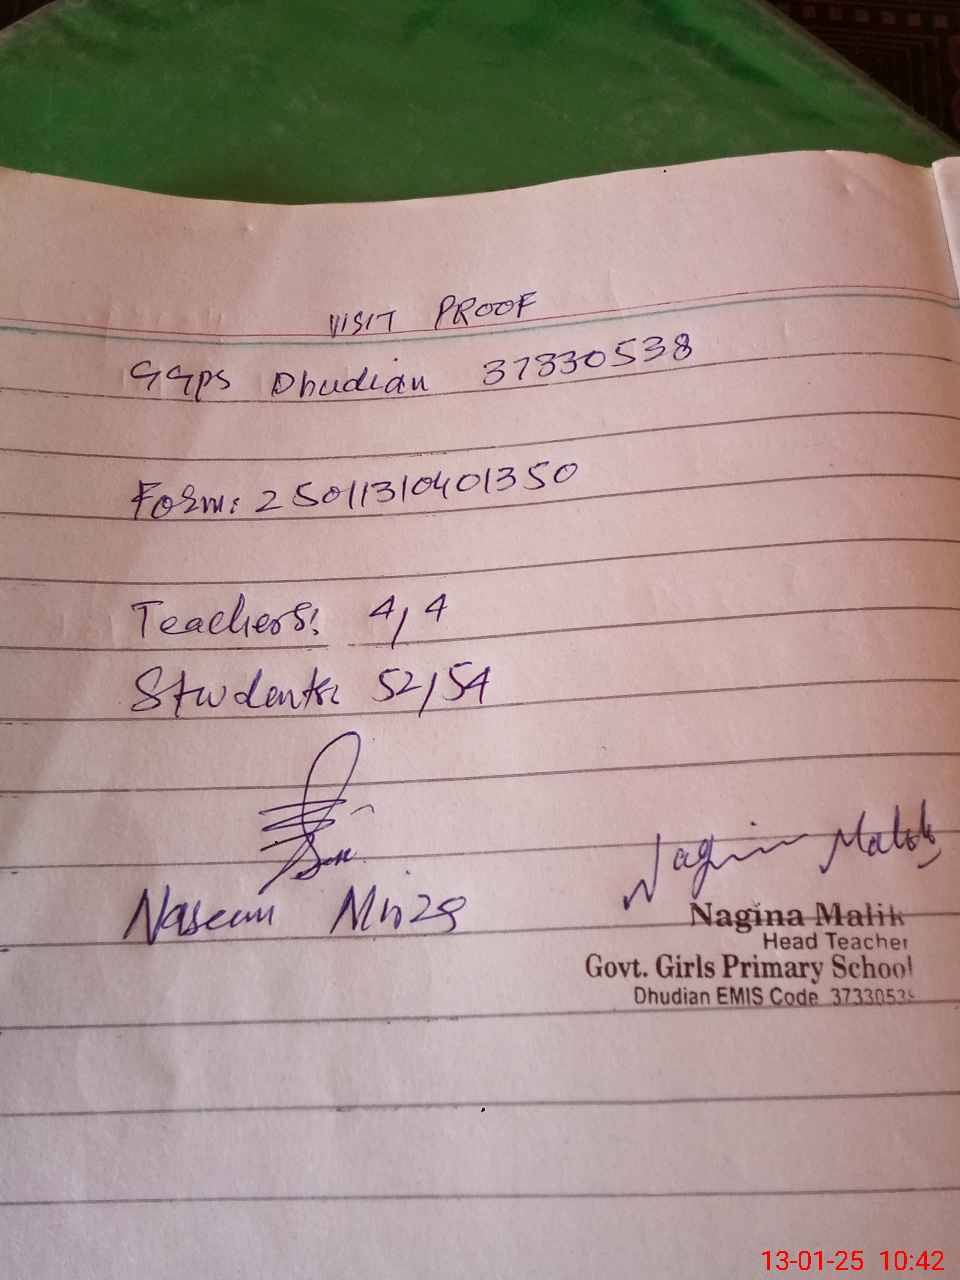 VISIT PROOF
GGPS Dhudian 37330538
Form: 25011310401350
Teachers: 4/4
Students: 52/54
Naseem Mirza
Nagina Malik
Nagina Malik
Head Teacher
Govt. Girls Primary School
Dhudian EMIS Code 37330538
13-01-25 10:42